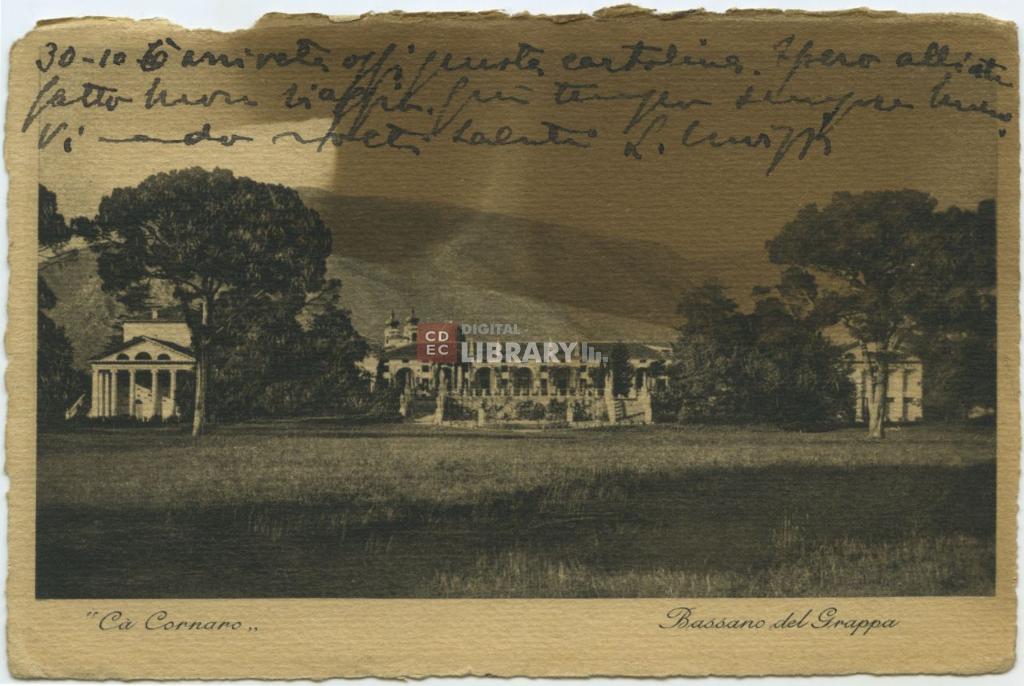 30-10 È arrivata oggi questa cartolina. Spero abbiate
fatto buon viaggio. Qui tempo sempre buono.
Vi mando molti saluti L.
CDEC DIGITAL LIBRARY
"Cà Cornaro„
Bassano del Grappa